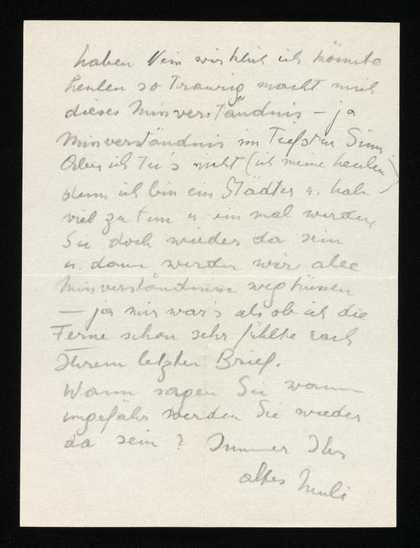 haben Nein wirklich ich könnte
heulen so traurig macht mich
dieses Missverständnis – ja
Missverständnis im Tiefsten Sinn,
Aber ich tu's nicht (ich meine heulen)
denn ich bin ein Städter u. hab
viel zu tun u. ein mal werden
Sie doch wieder da sein
u. dann werden wir alle
Missverständnisse wegküssen
– ja mir war's als ob ich die
Ferne schon sehr fühlte nach
Ihrem letzten Brief.
Wann sagen Sie wann
ungefähr werden Sie wieder
da sein? Immer Ihr
altes